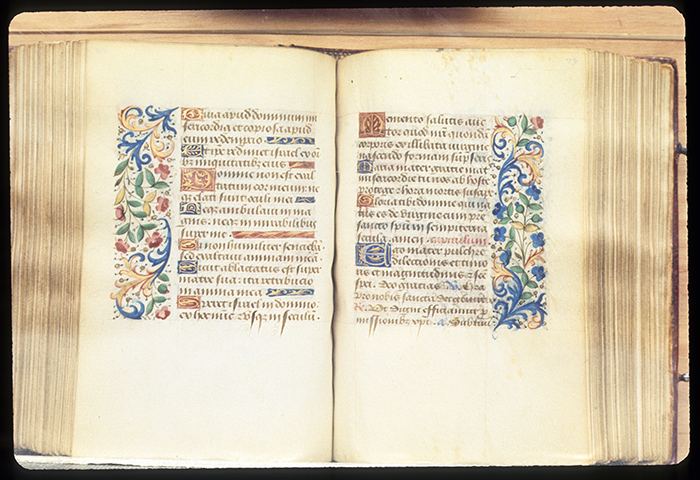 Quia apud dominum mi
sericordia et copiosa apud
eum redemptio
Et ipse redimet israel ex om
nibus iniquitatibus eius
Domine non est exal
tatum cor meum ne
que elati sunt oculi mei
Neque ambulavi in ma
gnis neque in mirabilibus
super me
Si non humiliter sentieba
sed exaltavi animam mea
Sicut ablactatus est super
matre sua ita retributio
in anima mea
Speret israel in domino
ex hoc nunc et usque in seculum
Memento salutis auc
tor quod nostri quondam
corporis ex illibata virgine
nascendo formam sumpseris
Maria mater gratie mater
misericordie tu nos ab hoste
protege et hora mortis suscipe
Gloria tibi domine qui na
tus es de virgine cum patre
sancto spiritu in sempiterna
secula amen capitulum
Ego mater pulchre
dilectionis et timo
ris et magnitudinis et sancte
spei Deo gratias Ora
pro nobis sancta dei genitrix
Ut digni efficiamur pro
missionibus